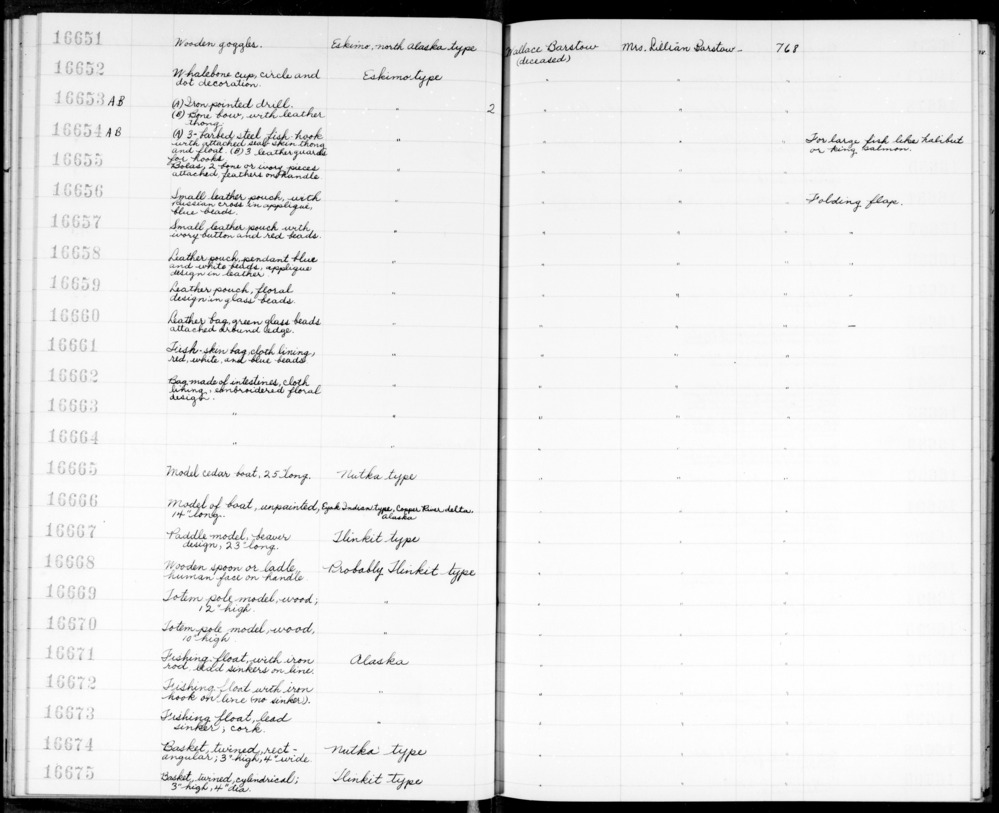 16651 Wooden goggles. Eskimo, north Alaska type Wallace Barstow Mrs. Lillian Barstow - 768
(deceased)
16652 Whalebone cup, circle and Eskimo type " " "
dot decoration.
16653 AB (A) Iron pointed drill. " 2 " " "
(B) Bone bow, with leather
thong
16654 AB (A) 3-barbed steel fish hook " " " " For large fish like halibut
with attached seal-skin thong or king salmon.
and float. (B) 3 leather guards
for hooks
16655 Bolas, 2 bone or ivory pieces " " " "
attached, feathers on handle
16656 Small leather pouch, with " " " " Folding flap.
russian cross in applique,
blue beads.
16657 Small leather pouch with " " " " "
ivory button and red beads.
16658 Leather pouch, pendant blue " " " " "
and white beads, applique
design in leather
16659 Leather pouch, floral " " " " "
design in glass beads.
16660 Leather bag, green glass beads " " " " —
attached around edge.
16661 Fish-skin bag, cloth lining, " " " "
red, white, and blue beads
16662 Bag made of intestines, cloth " " " "
lining, embroidered floral
design.
16663 " " " " "
16664 " " " " "
16665 Model cedar boat, 25" long. Nutka type " " "
16666 Model of boat, unpainted, Eyak Indian type, Copper River delta " " "
14" long. Alaska
16667 Paddle model, beaver Tlinkit type " " "
design, 23" long.
16668 Wooden spoon or ladle, Probably Tlinkit type " " "
human face on handle
16669 Totem pole model, wood; " " " "
12" high.
16670 Totem pole model, wood, " " " "
10" high.
16671 Fishing float, with iron Alaska " " "
rod lead sinkers on line.
16672 Fishing float with iron " " " "
hook on line (no sinker).
16673 Fishing float, lead " " " "
sinker, cork.
16674 Basket, twined, rect- Nutka type " " "
angular; 3" high, 4" wide
16675 Basket, twined, cylendrical; Tlinkit type " " "
3" high, 4" dia.